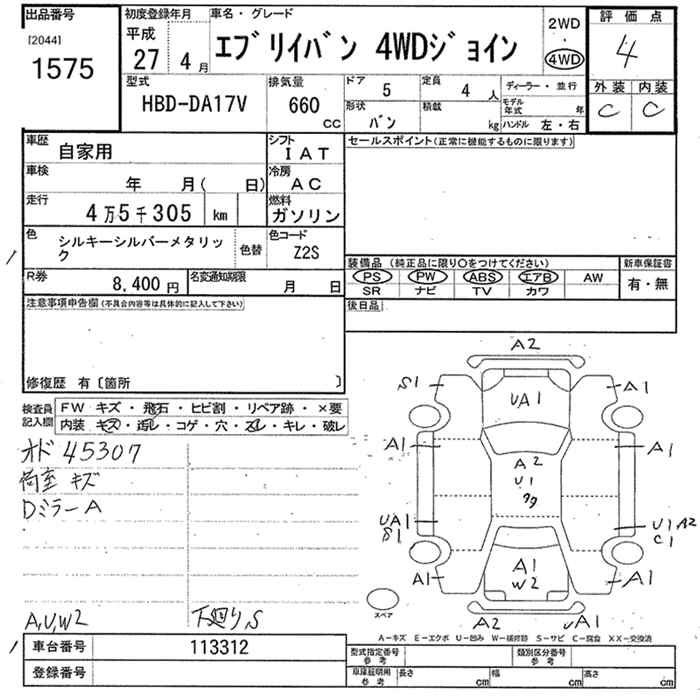 出品番号
[2044]
1575
初度登録年月
平成
27 4月
車名・グレード
エブリイバン 4WDジョイン
2WD
・
4WD
評価点
4
外装 内装
C C
型式
HBD-DA17V
排気量
660
cc
ドア 5
定員 4 人
形状 バン
積載 kg
ディーラー・並行
モデル年式 年
ハンドル 左・右
車歴
自家用
シフト
IAT
車検
年 月( 日)
冷房
AC
走行
4万5千305 km
燃料
ガソリン
色
シルキーシルバーメタリック
色替
色コード
Z2S
R券
8,400円
名変通知期限
月 日
注意事項申告欄(不具合内容等は具体的に記入して下さい)
修復歴 有〔箇所 〕
セールスポイント(正常に機能するものに限ります)
装備品 (純正品に限り〇をつけてください)
PS PW ABS エアB AW
SR ナビ TV カワ
新車保証書
有・無
後日品
検査員記入欄
FW キズ・飛石・ヒビ割・リペア跡・×要
内装 キズ・汚レ・コゲ・穴・スレ・キレ・破レ
オド 45307
荷室 キズ
Dミラー A
A,U,W2
下廻り,S
A2
S1
A1
UA1
A1
A1
A2
U1
UA1
S1
U1 A2
C1
A1
A1
W2
A1
A2
UA1
スペア
A-キズ E-エクボ U-凹み W-補修跡 S-サビ C-腐食 XX-交換済
車台番号
113312
登録番号
型式指定番号
参考
類別区分番号
参考
車庫証明用
参考
長さ cm
幅 cm
高さ cm